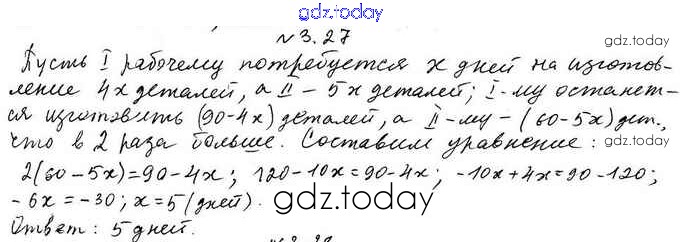 gdz.today
№3.27
gdz.today
Пусть I рабочему потребуется x дней на изготов-
ление 4x деталей, а II - 5x деталей; I-му останет-
ся изготовить (90-4x) деталей, а II-му - (60-5x) дет.,
что в 2 раза больше. Составим уравнение:
2(60-5x)=90-4x; 120-10x=90-4x; -10x+4x=90-120;
-6x=-30; x=5 (дней).
gdz.today
gdz.today
Ответ: 5 дней.